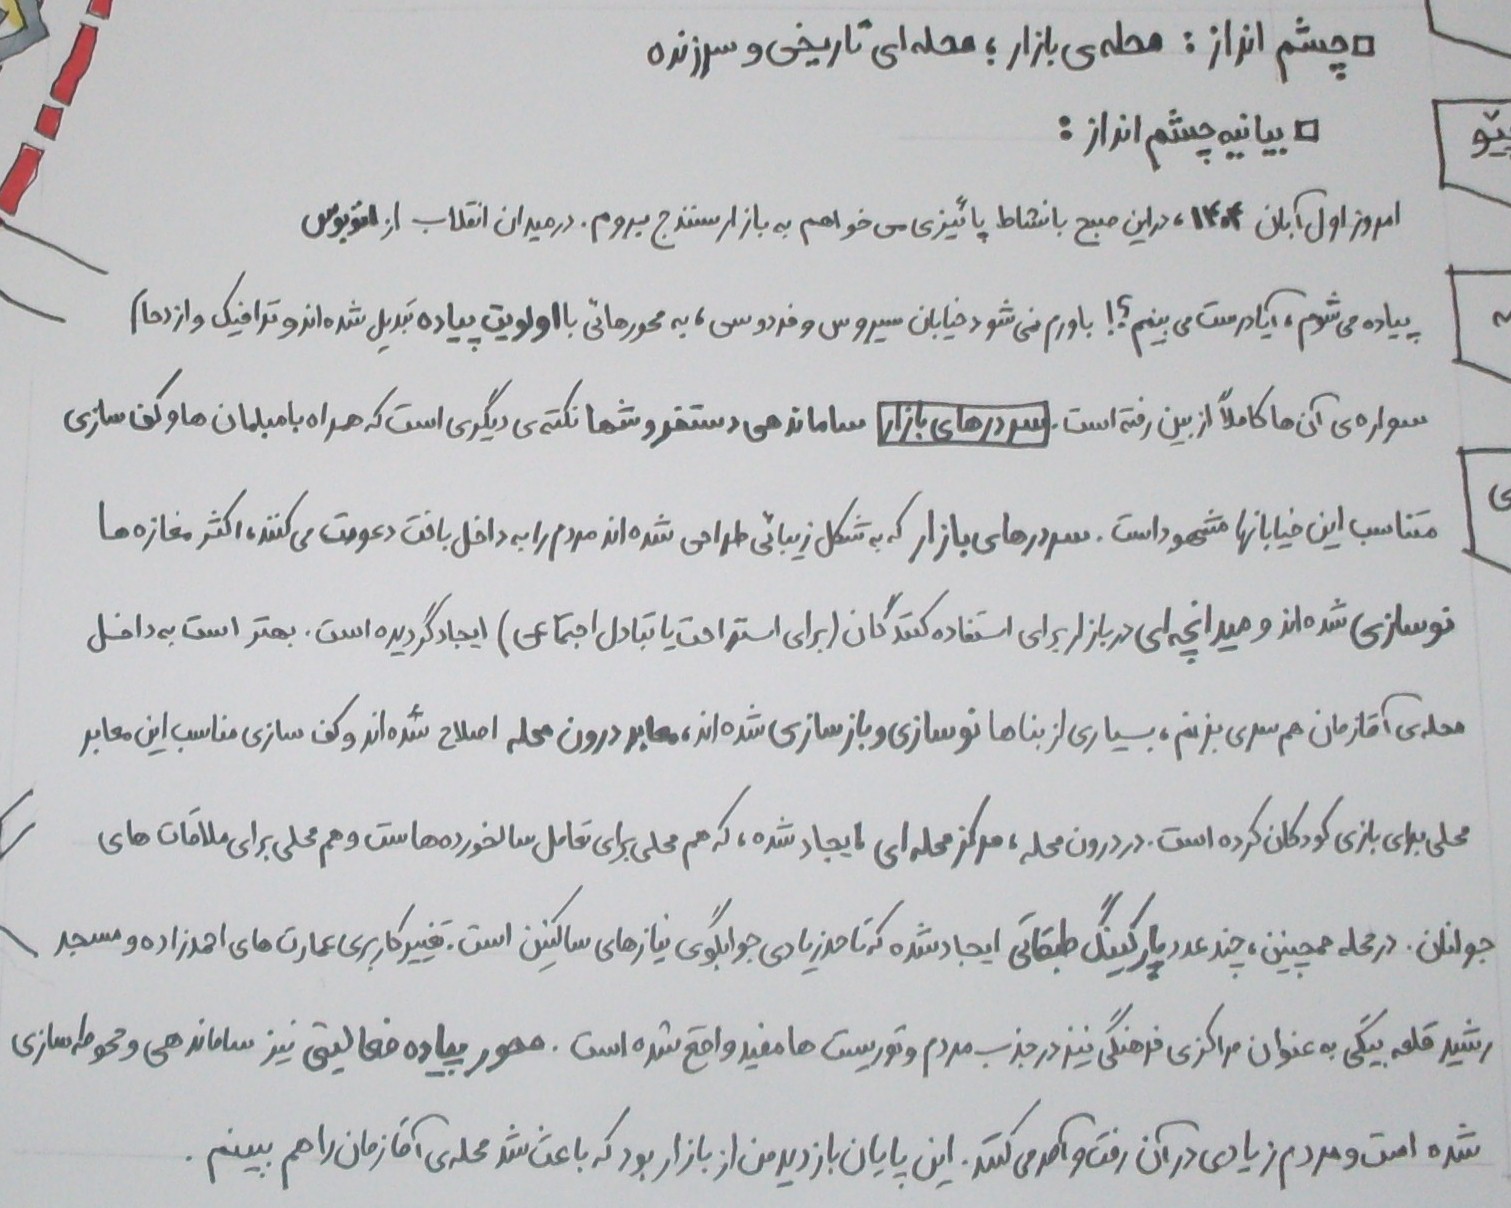 □ چشم انداز : محله ی بازار ؛ محله ای تاریخی و سرزنده
□ بیانیه چشم انداز :
امروز اول آبان ۱۴۰۴ ، در این صبح با نشاط پائیزی می خواهم به بازار سنندج بروم . در میدان انقلاب از اتوبوس
پیاده می شوم ، آیا درست می بینم ؟! باورم نمی شود خیابان سیروس و فردوسی ، به محورهائی با اولویت پیاده تبدیل شده اند و ترافیک و ازدحام
سواره ی آن ها کاملاً از بین رفته است . سردرهای بازار ساماندهی دستفروشها نکته ی دیگری است که همراه با مبلمان ها و کف سازی
متناسب این خیابانها مشهود است . سردرهای بازار که به شکل زیبائی طراحی شده اند مردم را به داخل بافت دعوت می کنند ، اکثر مغازه ها
نوسازی شده اند و میدانچه ای در بازار برای استفاده کنندگان (برای استراحت یا تبادل اجتماعی) ایجاد گردیده است . بهتر است به داخل
محله ی آقازمان هم سری بزنم ، بسیاری از بناها نوسازی و بازسازی شده اند ، معابر درون محله اصلاح شده اند و کف سازی مناسب این معابر
محلی برای بازی کودکان کرده است . در درون محله ، مرکز محله ای ایجاد شده ، که هم محلی برای تعامل سالخورده هاست و هم محلی برای ملاقات های
جوانان . در محله همچنین ، چند عدد پارکینگ طبقاتی ایجاد شده که تا حد زیادی جوابگوی نیازهای ساکنین است . تغییر کاربری عمارت های احمدزاده و مسجد
رشید قلعه بیگی به عنوان مراکزی فرهنگی نیز در جذب مردم و توریست ها مفید واقع شده است . محور پیاده فعالیتی نیز ساماندهی و محوطه سازی
شده است و مردم زیادی در آن رفت و آمد می کنند . این پایان بازدید من از بازار بود که باعث شد محله ی آقازمان را هم ببینم .